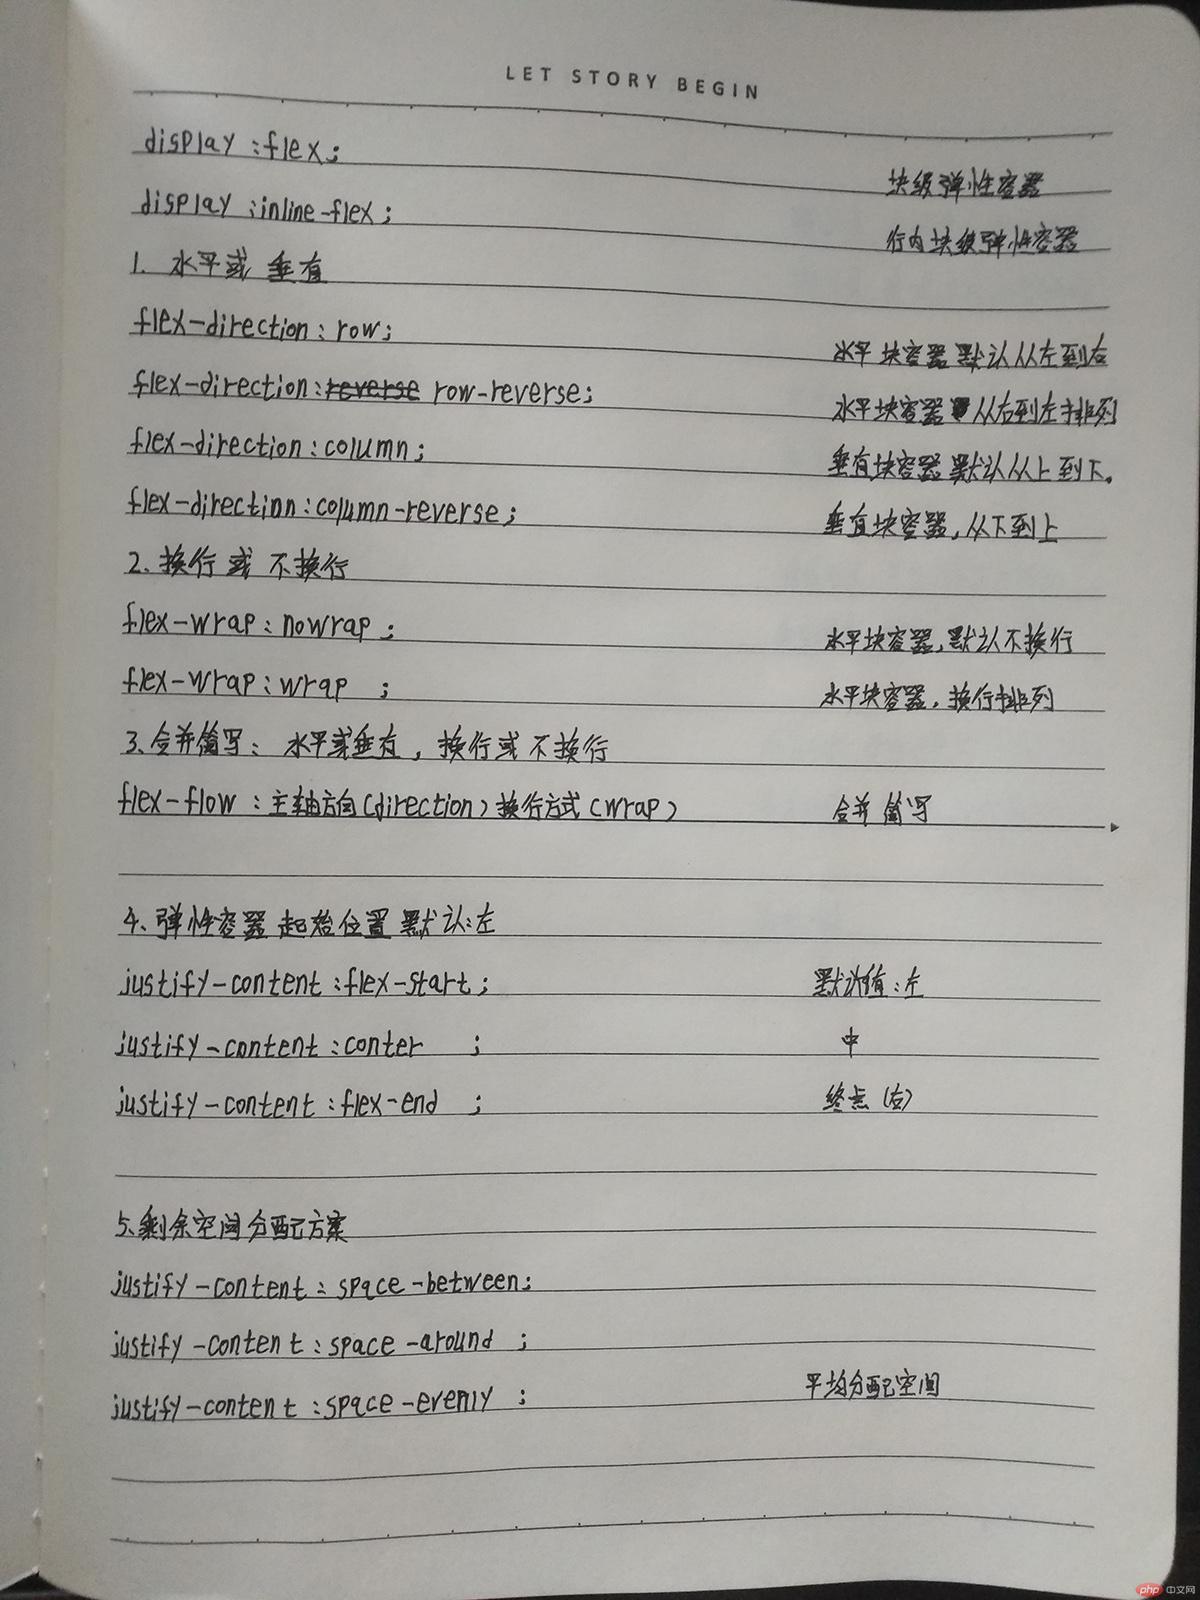 LET STORY BEGIN
display :flex; 块级弹性容器
display :inline-flex; 行内块级弹性容器
1. 水平或垂直
flex-direction:row; 水平块容器默认从左到右
flex-direction:reverse row-reverse; 水平块容器 从右到左排列
flex-direction:column; 垂直块容器默认从上到下.
flex-directinn:column-reverse; 垂直块容器,从下到上
2、换行或 不换行
flex-wrap:nowrap ; 水平块容器,默认不换行
flex-wrap:wrap ; 水平块容器,换行排列
3、合并简写: 水平或垂直,换行或不换行
flex-flow :主轴方向(direction)换行方式(wrap) 合并简写
4、弹性容器起始位置默认:左
justify-content:flex-start; 默认值:左
justify-content:conter ; 中
justify-content:flex-end ; 终点(右)
5、剩余空间分配方案
justify-content:space-between;
justify-content:space-around ;
justify-content:space-evenly ; 平均分配空间
php 中文网